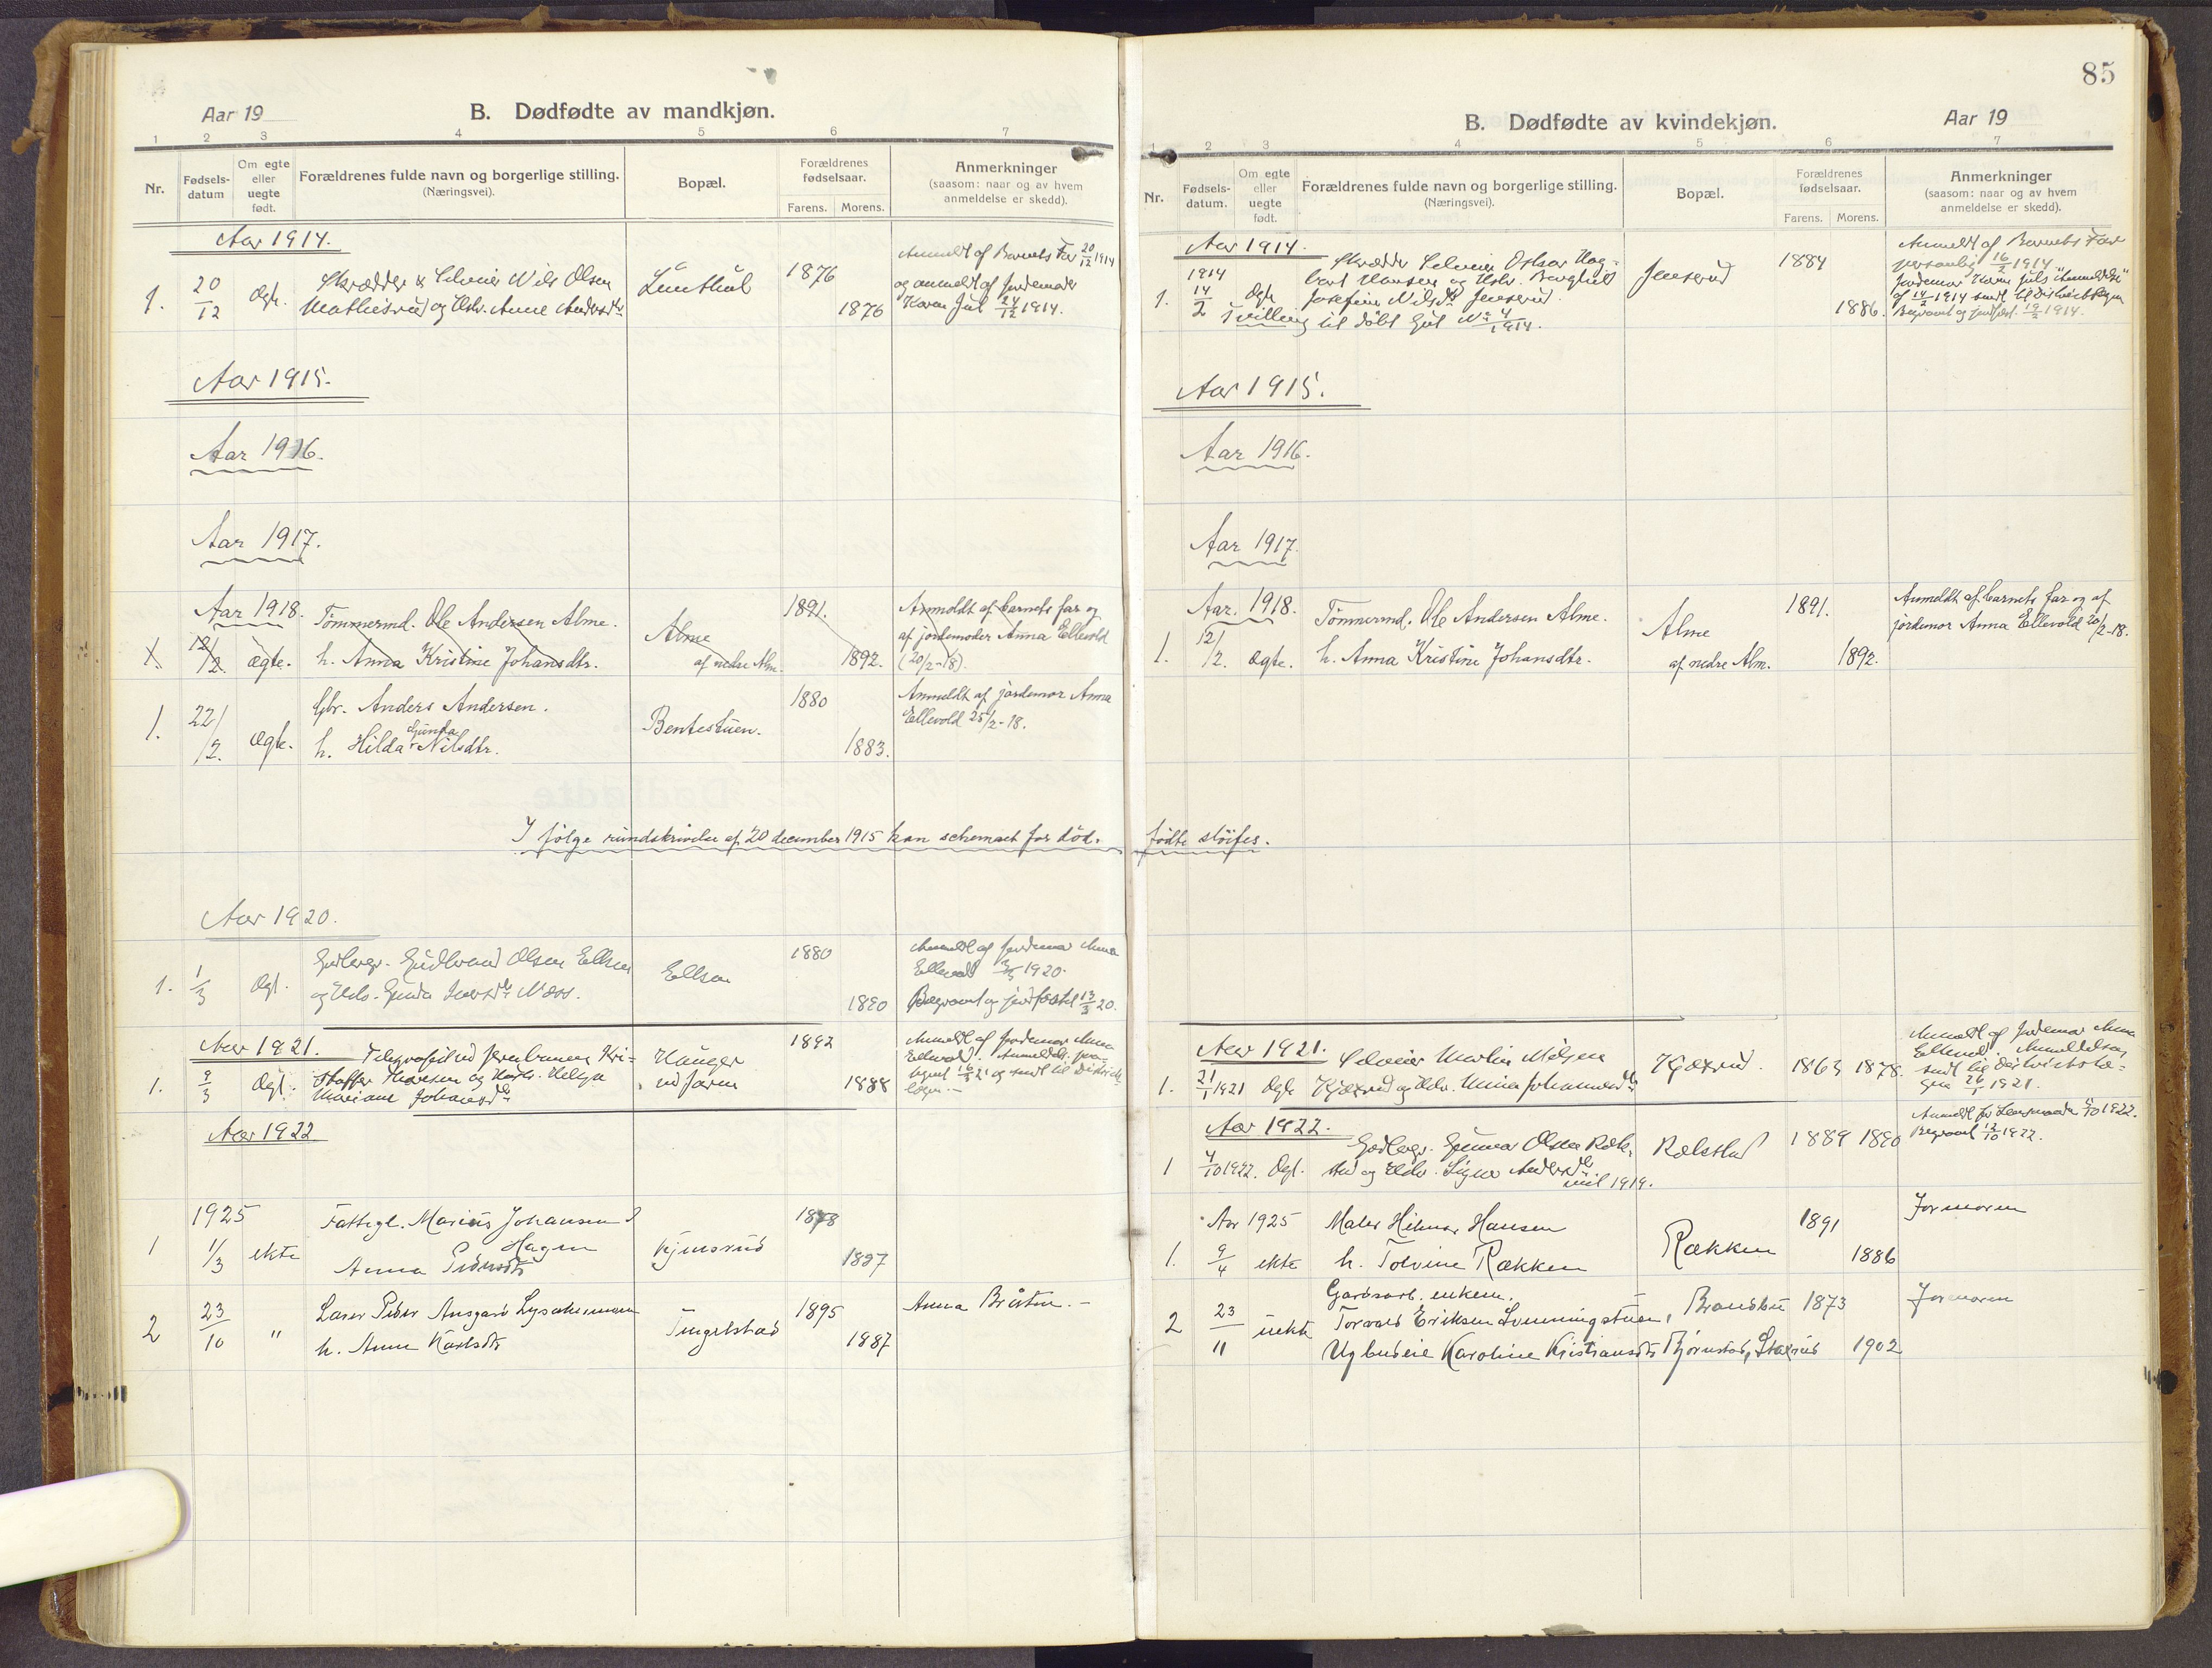 Aar 19
B. Dødfødte av mandkjøn.
1 2 3 4 5 6 7
Nr.
Fødsels-
datum
Om egte
eller
uegte
født.
Forældrenes fulde navn og borgerlige stilling.
(Næringsvei).
Bopæl.
Forældrenes
fødselsaar.
Farens. Morens.
Anmerkninger
(saasom: naar og av hvem
anmeldelse er skedd).
Aar 1914.
1. 20/12 Ægte. Skrædder & Selveier Nils Olsen
Mathiesrud og Hstr. Anne Andersdtr
1876
1876
Anmeldt af Barnets Far 20/12 1914
og anmeldt af Jordemoder
Karen Jul 24/12 1914.
Aar 1915.
Aar 1916.
Aar 1917.
Aar 1918.
1. 12/2. ægte. Tømmermd. Ole Andersen Alme.
h. Anna Kristine Johansdtr.
Alme
af nedre Alm.
1891.
1892.
Anmeldt af barnets far og
af jordemoder Anna Ellevold
(20/2-18).
1. 22/2. Ægte. Gbr. Anders Andersen.
h. Hilda Gunda Nilsdtr.
Bentestuen.
1880
1883.
Anmeldt af jordemor Anna
Ellevold 25/2-18.
I følge rundskrivelse af 20 december 1915 kan schemaet for død-
Aar 1920.
1. 1/3 Ægt. Gudbrand Olsen Ellsen
og Hstr. Gunda
Næss.
Ellsen
1880
1890
Anmeldt af Jordemor Anna
Ellevold 1920.
Begravet og jordfæstet 13/3 20.
Aar 1921.
1. 9/3 Ægt. Telegrafist ved Jernbanen Kri-
stoffer Hansen og Hustr. Helga
Mariane Johansdtr
Hauger
ved Jaren
1892
1888
Anmeldt af Jordemor Anna
Ellevold. Anmeldels.
16/3 21 og sendt til Distrikts-
lægen.-
Aar 1922
1925
1 1/3 ekte Fattigl. Marius Johansen
Hagen
Anna Pedersdtr
1878
1887
2 23/10 " Lærer Peder Ansgar Lysakermoen
h. Anna Karlsdtr
Tingelstad
1895
1887
Anna Bråten.-
85
B. Dødfødte av kvindekjøn.
Aar 19
1 2 3 4 5 6 7
Nr.
Fødsels-
datum.
Om egte
eller
uegte
født.
Forældrenes fulde navn og borgerlige stilling.
(Næringsvei).
Bopæl.
Forældrenes
fødselsaar.
Farens. Morens.
Anmerkninger
(saasom: naar og av hvem
anmeldelse er skedd).
Aar 1914.
1. 1914 14/2 Ægte Skrædder Selveier Oskar Hag-
bart Hansen og Hstr. Borghild
Josefine Nilsdtr Jenserud.
Tvilling til døbt Gut No 4/1914.
Jenserud
1884
1886.
Anmeldt af Barnets Far
personlig 16/2 1914
Jordemor Karen Juls "Anmeldelse"
af 14/2 1914 sendt til Distriktslægen
Begravet og jordfæst. 1914.
Aar 1915.
Aar 1916.
Aar 1917.
Aar. 1918.
1. 12/2. Ægte. Tømmermd. Ole Andersen Alme.
h. Anna Kristine Johansdtr.
Alme
af nedre Alm.
1891.
1892.
Anmeldt af barnets far og af
jordemor Anna Ellevold 20/2-18.
fødte sløifes.
Aar 1921.
1. 21/1 1921 Ægte Selveier Martin Nilsen
Kjæxrud og Hstr. Mina Johannesdtr
Kjæxrud
1863 1878.
Anmeldt af Jordemor Anna
Ellevold. Anmeldelsen
sendt til Distriktslæ-
gen 26/1 1921.
Aar 1922.
1 4/10 1922. Ægt. Gunnar Olsen
og Hstr. Signe Andersdtr
1919.
1889 1890
Anmeldt for Lensmanden 1922.
Begravet 12/10 1922.
Aar 1925
1. 9/4 ekte Maler Hilmar Hansen
h. Tolvine Rækken
Rækken
1891
1886
Jormoren
2 23/11 uekte Gårdsarb. enkem.
Torvald Eriksen Lønningstuen, Brandbu 1873
Ug. budeie Karoline Kristiansdtr Bjørnstad, 1902
Jormoren